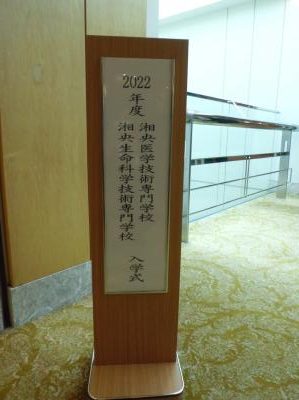 2022
年度
湘央医学技術専門学校
湘央生命科学技術専門学校
入学式